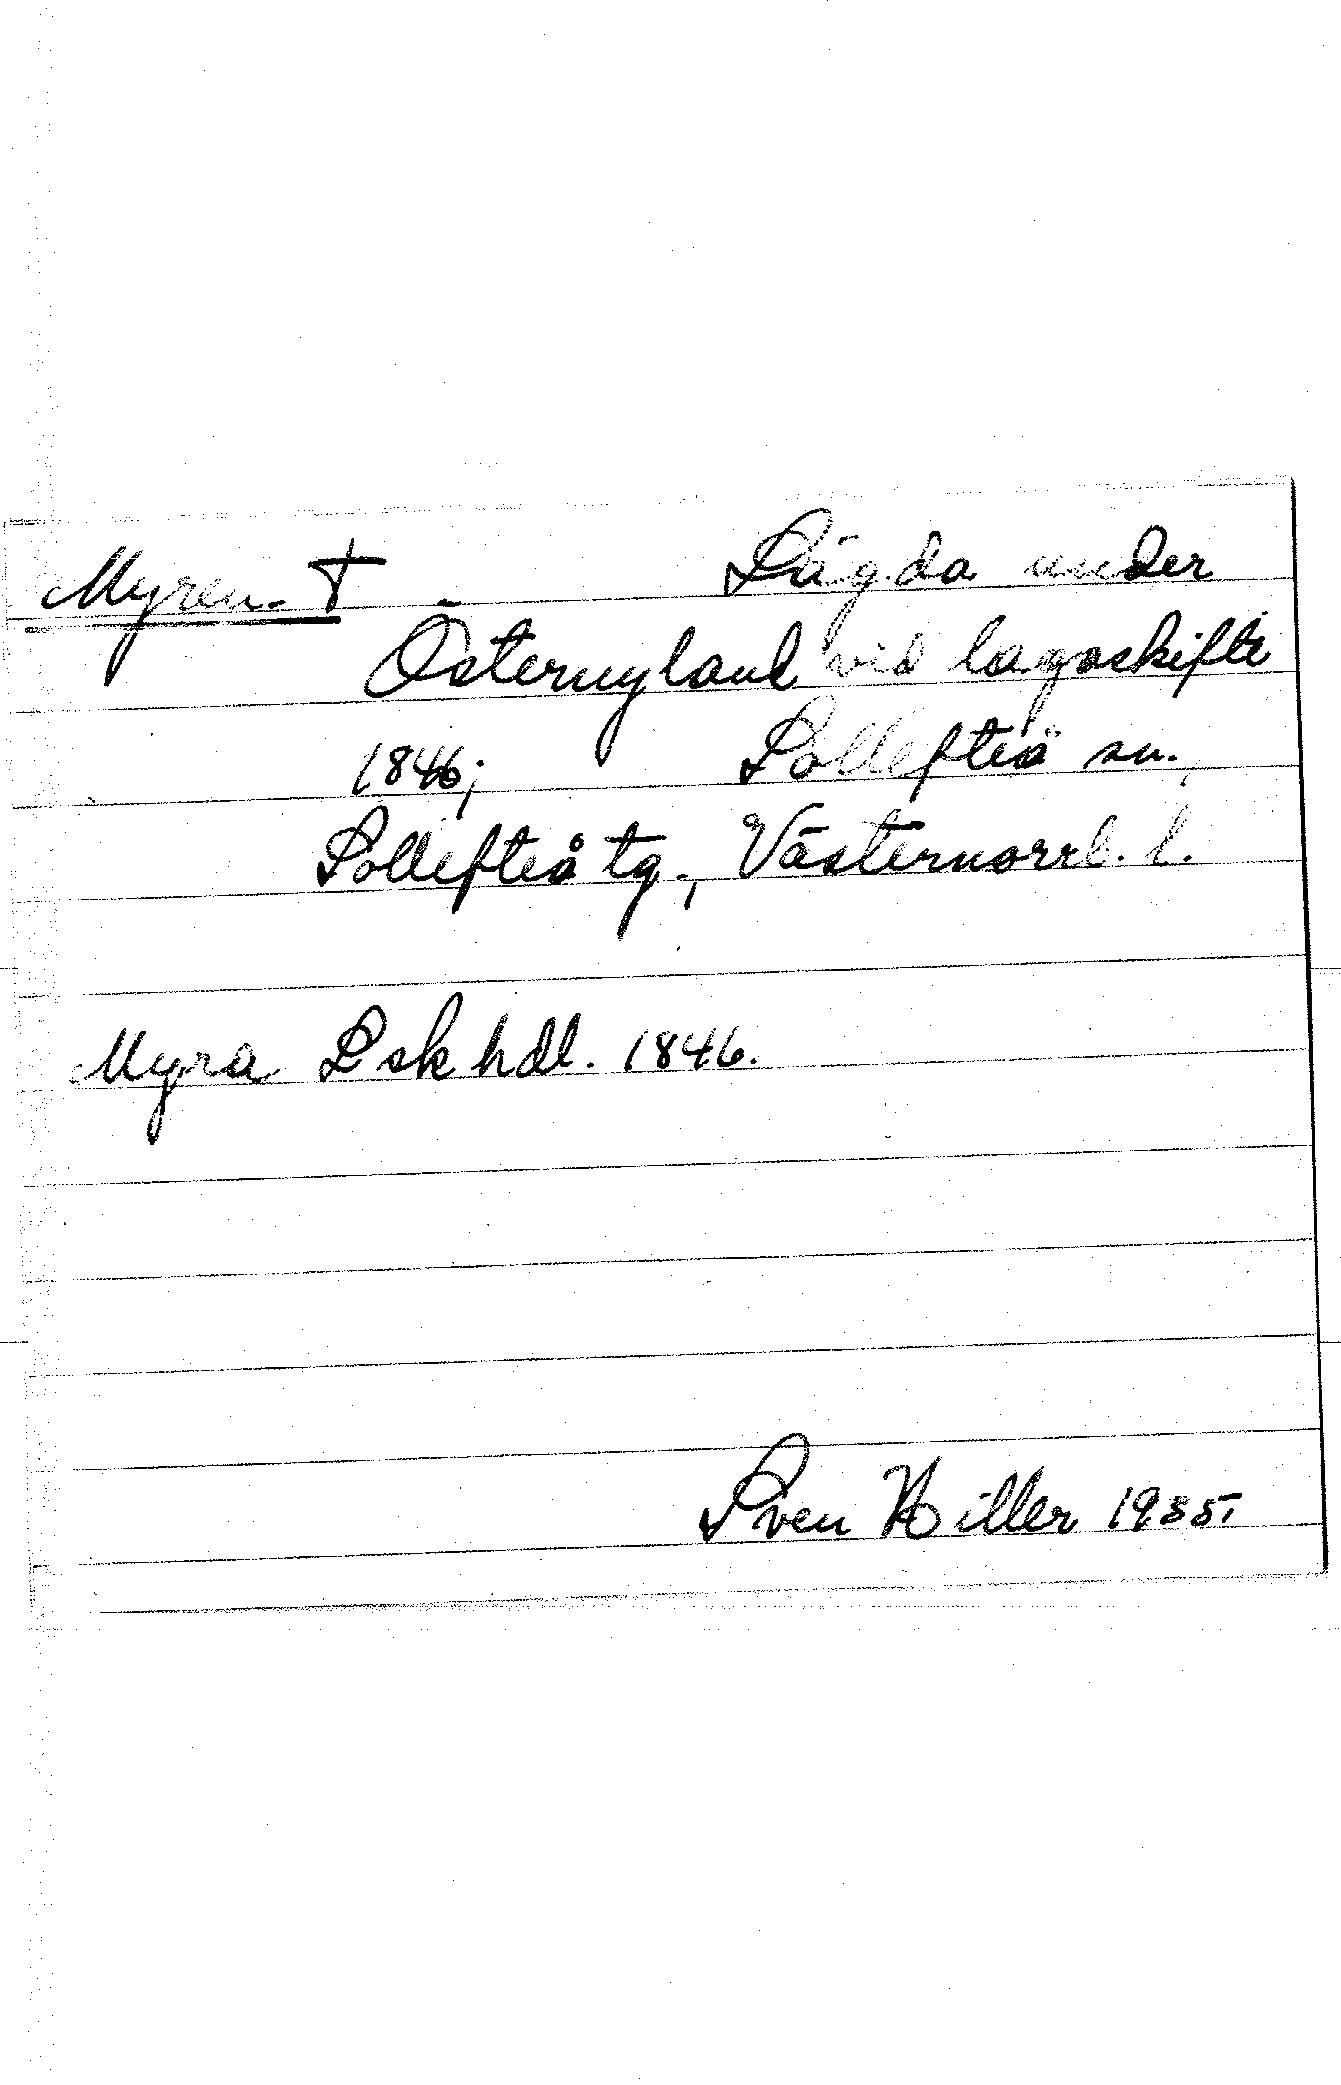 Myren † Lägda under
Östernyland vid lagaskifte
1846; Sollefteå sn.,
Sollefteå tg., Västernorrl. l.
Myra Lskhdl. 1846.
Sven Hiller 1935.